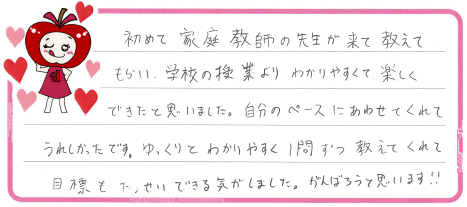 初めて 家庭教師の先生が来て教えて
もらい、学校の授業より わかりやすくて 楽しく
できたと思いました。自分のペースにあわせてくれて
うれしかったです。ゆっくりと わかりやすく 1問ずつ 教えてくれて
目標も たっせいできる気がしました。がんばろうと思います!!